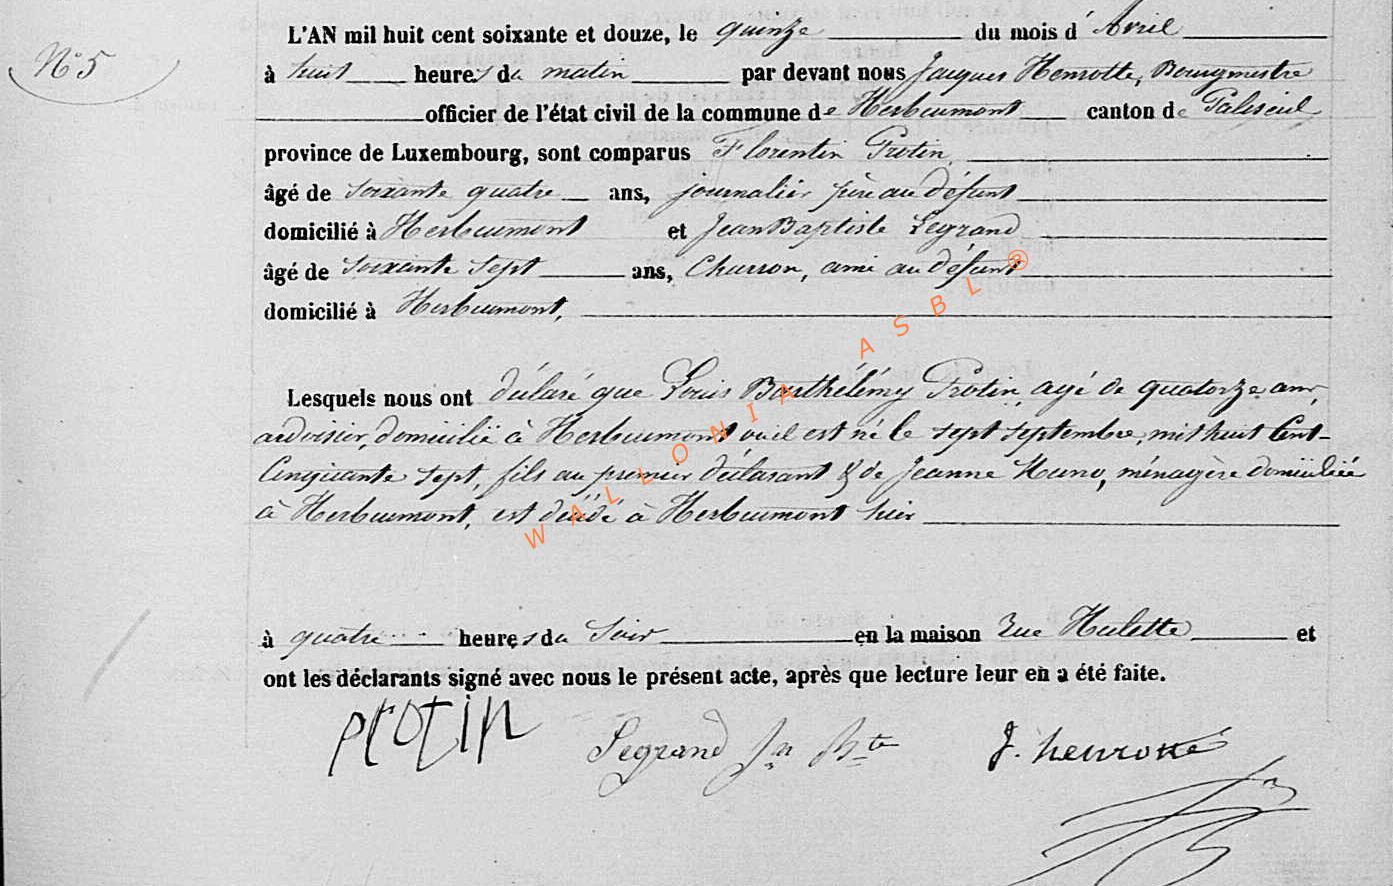 N° 5
L'AN mil huit cent soixante et douze, le quinze du mois d' Avril
à huit heures du matin par devant nous Jacques Henrotte, Bourgmestre
officier de l'état civil de la commune de Herbeumont canton de Paliseul
province de Luxembourg, sont comparus Florentin Protin,
âgé de soixante quatre ans, journalier père au défunt
domicilié à Herbeumont et Jean Baptiste Legrand
âgé de soixante sept ans, Charron, ami au défunt
domicilié à Herbeumont,
Lesquels nous ont déclaré que Louis Barthélémy Protin, agé de quatorze ans,
ardoisier, domicilié à Herbeumont où il est né le sept septembre, mil huit Cent-
Cinquante sept, fils au premier déclarant & de Jeanne , ménagère domiciliée
à Herbeumont, est décédé à Herbeumont hier
à quatre heures du Soir en la maison Rue Hulette et
ont les déclarants signé avec nous le présent acte, après que lecture leur en a été faite.
protin Legrand Jn Bte J. henrotte
WALLONIA ASBL ®